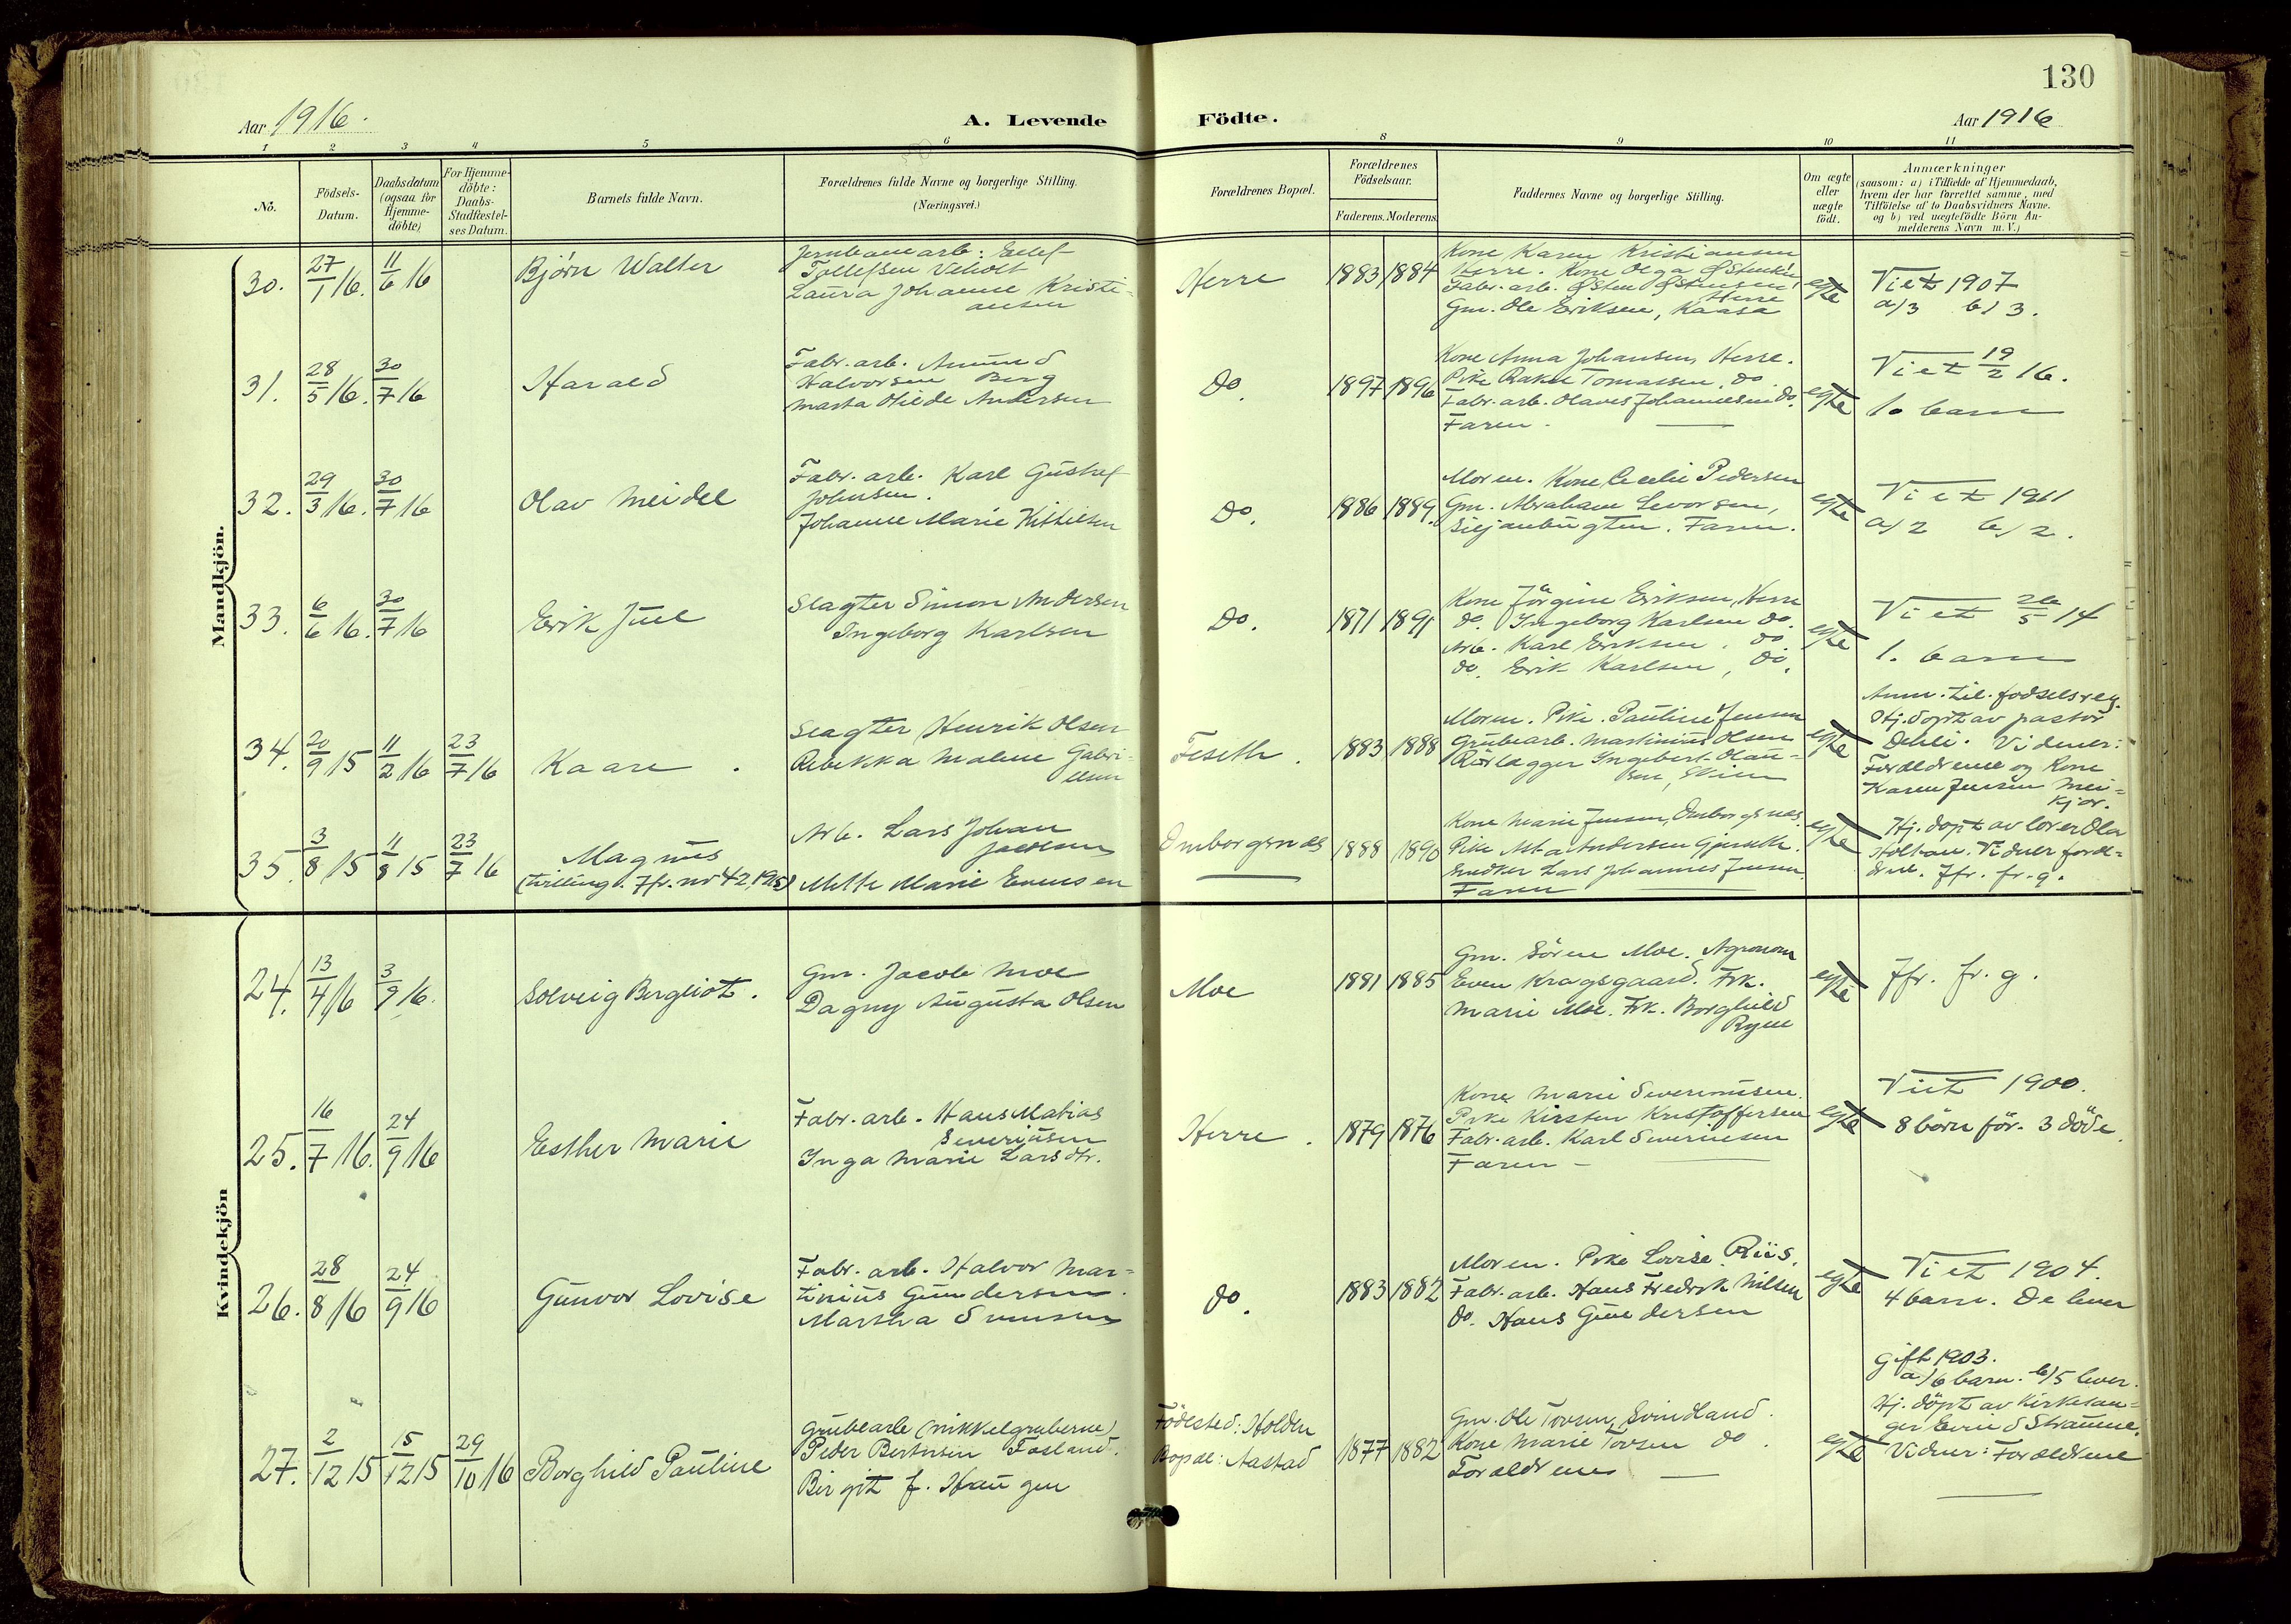 130
Aar 1916.
A. Levende
Födte.
Aar 1916
1 2 3 4 5 6 8 9 10 11
No.
Födsels-
Datum.
Daabsdatum
(ogsaa for
Hjemme-
döbte)
For Hjemme-
döbte:
Daabs-
Stadfæstel-
ses Datum.
Barnets fulde Navn.
Forældrenes fulde Navne og borgerlige Stilling.
(Næringsvei.)
Forældrenes Bopæl.
Forældrenes
Födselsaar.
Faderens. Moderens
Faddernes Navne og borgerlige Stilling.
Om ægte
eller
uægte
födt.
Anmærkninger
(saasom: a) i Tilfælde af Hjemmedaab,
hvem der har forrettet samme, med
Tilföielse af to Daabsvidners Navne.
og b) ved uægtefödte Börn An-
melderens Navn m. V.)
Mandkjön.
30.
27/1 16.
11/6 16
Bjørn Walter
Jernbanearb: Eelef
Tollefsen Veholt
Laura Johanne Kristi-
ansen
Herre
1883
1884
Kone Karen Kristiansen
Herre. Kone Olga Østensen
Fabr. arb. Østen Østensen,
Herre
Gm. Ole Eriksen, Kaasa
egte
Viet 1907
a/3 b/3.
31.
28/5 16.
30/7 16
Harald
Fabr. arb. Amund
Halvorsen Berg
Marta Otilde Andersen
Do.
1897
1896
Kone Anna Johansen, Herre.
Pike Rakel Tomassen, do.
Fabr. arb. Olaves Johannesen do.
Faren.
egte
Viet 19/2 16.
1o barn
32.
29/3 16.
30/7 16
Olav Meidel
Fabr. arb. Karl Gustaf
Johnsen.
Johanne Marie Kittilsen
Do.
1886
1889.
Moren. Kone Cecelie Pedersen
Gm. Abraham Levorsen,
Siljanbugten. Faren.
egte
Viet 1911
a/2 b/2.
33.
6/6 16.
30/7 16
Erik Juel
Slagter Simon Andersen
Ingeborg Karlsen
Do.
1871
1891
Kone Jörgine Eriksen, Herre
do. Ingeborg Karlsen do.
Arb. Karl Eriksen. do.
do. Erik Karlsen, do.
egte
Viet 26/5 14
1. barn
34.
20/9 15
11/2 16
23/7 16
Kaare.
Slagter Henrik Olsen
Rebekka Malene Gabri-
elsen
Feseth.
1883
1888
Moren. Pike. Pauline Jensen
Grubearb. Martinius Olsen
Rørlægger Ingebert Olau-
sen, Skien
egte
Anm. til. fødselsreg.
Hj. døpt av pastor
Dehli. Vidner:
Foreldrene og Kone
Karen Jensen Mei-
kjær.
35.
3/8 15
11/8 15
23/7 16
Magnus
(tvilling. Jfr. nr 42, 1915)
Arb. Lars Johan
Jacobsen
Mette Marie Evensen
Omborgsnes
1888
1890
Kone Marie Jensen, Omborgsnes.
Pike Asta Andersen Gjerseth.
Snedker Lars Johannes Jensen
Faren
egte
Hj. døpt av lærer Ola
Holtan. Vidner foræl-
drene. Jfr. fr. g.
Kvindekjön
24.
13/4 16
3/9 16.
Solveig Bergliot.
Gm. Jacob Moe
Dagny Augusta Olsen
Moe
1881
1885
Gm. Sören Moe. Agronom
Even Kragsgaard. Frk.
Marie Moe. Frk. Borghild
Ryen
egte
Jfr. fr. g.
25.
16/7 16.
24/9 16
Esther Marie
Fabr. arb. Hans Matias
Severinsen
Inga Marie Larsdtr.
Herre.
1879
1876
Kone Marie Severinsen.
Pike Kirsten Kristoffersen
Fabr. arb. Karl Severinsen
Faren –
egte
Viet 1900.
8 börn før. 3 döde.
26.
28/8 16
24/9 16
Gunvor Lovise
Fabr. arb. Halvor Mar-
tinius Gundersen.
Martha Svensen
do.
1883
1882
Moren. Pike Lovise Riis.
Fabr. arb. Hans Fredrik Nilsen
do. Hans Gundersen
egte
Viet 1904.
4 barn. De lever
27.
2/12 15
15/12 15
29/10 16
Borghild Pauline
Grubearb (nikkelgruberne)
Peder Berntsen Fosland.
Birgit f. Haugen
Födested: Holden
Bopæl: Aastad
1877
1882
Gm. Ole Torsen, Svindland.
Kone Marie Torsen do.
Foreldrene
egte
Gift 1903.
a/6 barn. b/5 lever.
Hj. döpt av Kirkesan-
ger Eevind Straume.
Vidner: Foreldrene